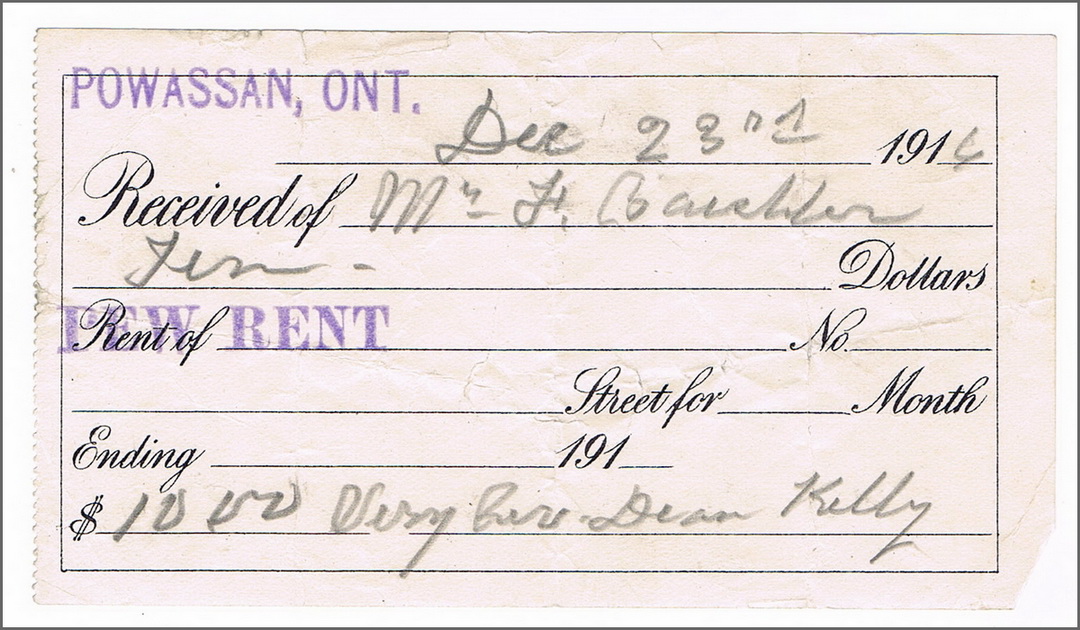 POWASSAN, ONT.
Dec 23rd 191
Received of Mr F.
Ten - Dollars
Rent of PEW RENT No.
Street for Month
Ending 191
$ 10 00 Very Rev. Dean Kelly